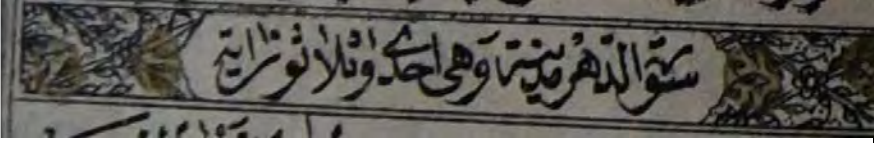 سورة الدهر مدنية وهى احدى وثلاثون اية